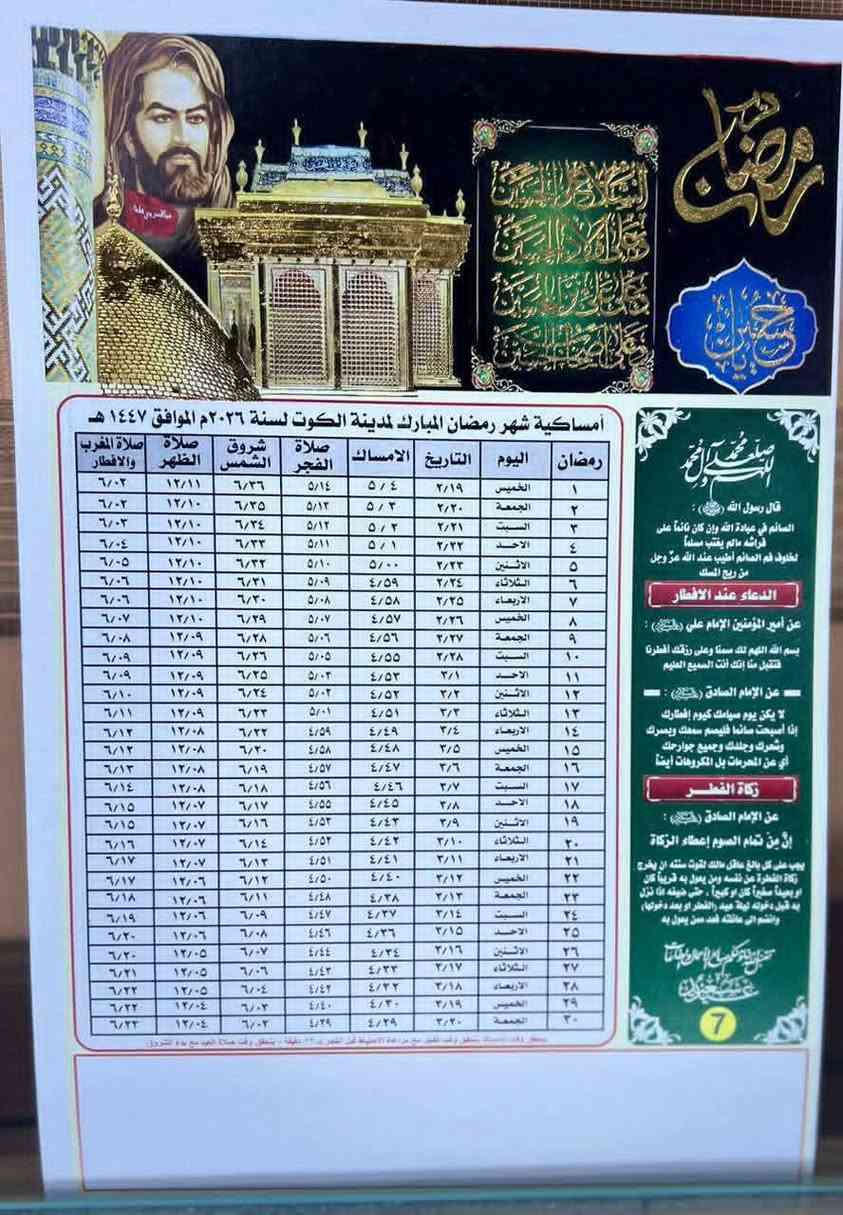 رمضان
السلام على الحسين
وعلى علي بن الحسين
وعلى أولاد الحسين
وعلى أصحاب الحسين
أمساكية شهر رمضان المبارك لمدينة الكوت لسنة ٢٠٢٦م الموافق ١٤٤٧ هـ
رمضان اليوم التاريخ الامساك صلاة الفجر شروق الشمس صلاة الظهر صلاة المغرب والافطار
١ الخميس ٢/١٩ ٥/٠٤ ٥/١٤ ٦/٣٦ ١٢/١١ ٦/٠٢
٢ الجمعة ٢/٢٠ ٥/٠٣ ٥/١٣ ٦/٣٥ ١٢/١٠ ٦/٠٢
٣ السبت ٢/٢١ ٥/٠٢ ٥/١٢ ٦/٣٤ ١٢/١٠ ٦/٠٣
٤ الاحد ٢/٢٢ ٥/٠١ ٥/١١ ٦/٣٣ ١٢/١٠ ٦/٠٤
٥ الاثنين ٢/٢٣ ٥/٠٠ ٥/١٠ ٦/٣٢ ١٢/١٠ ٦/٠٥
٦ الثلاثاء ٢/٢٤ ٤/٥٩ ٥/٠٩ ٦/٣١ ١٢/١٠ ٦/٠٦
٧ الاربعاء ٢/٢٥ ٤/٥٨ ٥/٠٨ ٦/٣٠ ١٢/١٠ ٦/٠٦
٨ الخميس ٢/٢٦ ٤/٥٧ ٥/٠٧ ٦/٢٩ ١٢/١٠ ٦/٠٧
٩ الجمعة ٢/٢٧ ٤/٥٦ ٥/٠٦ ٦/٢٨ ١٢/٠٩ ٦/٠٨
١٠ السبت ٢/٢٨ ٤/٥٥ ٥/٠٥ ٦/٢٦ ١٢/٠٩ ٦/٠٩
١١ الاحد ٣/١ ٤/٥٣ ٥/٠٣ ٦/٢٥ ١٢/٠٩ ٦/٠٩
١٢ الاثنين ٣/٢ ٤/٥٢ ٥/٠٢ ٦/٢٤ ١٢/٠٩ ٦/١٠
١٣ الثلاثاء ٣/٣ ٤/٥١ ٥/٠١ ٦/٢٣ ١٢/٠٩ ٦/١١
١٤ الاربعاء ٣/٤ ٤/٤٩ ٤/٥٩ ٦/٢٢ ١٢/٠٨ ٦/١٢
١٥ الخميس ٣/٥ ٤/٤٨ ٤/٥٨ ٦/٢٠ ١٢/٠٨ ٦/١٢
١٦ الجمعة ٣/٦ ٤/٤٧ ٤/٥٧ ٦/١٩ ١٢/٠٨ ٦/١٣
١٧ السبت ٣/٧ ٤/٤٦ ٤/٥٦ ٦/١٨ ١٢/٠٨ ٦/١٤
١٨ الاحد ٣/٨ ٤/٤٥ ٤/٥٥ ٦/١٧ ١٢/٠٧ ٦/١٥
١٩ الاثنين ٣/٩ ٤/٤٣ ٤/٥٣ ٦/١٦ ١٢/٠٧ ٦/١٥
٢٠ الثلاثاء ٣/١٠ ٤/٤٢ ٤/٥٢ ٦/١٤ ١٢/٠٧ ٦/١٦
٢١ الاربعاء ٣/١١ ٤/٤١ ٤/٥١ ٦/١٣ ١٢/٠٧ ٦/١٧
٢٢ الخميس ٣/١٢ ٤/٤٠ ٤/٥٠ ٦/١٢ ١٢/٠٦ ٦/١٧
٢٣ الجمعة ٣/١٣ ٤/٣٨ ٤/٤٨ ٦/١١ ١٢/٠٦ ٦/١٨
٢٤ السبت ٣/١٤ ٤/٣٧ ٤/٤٧ ٦/٠٩ ١٢/٠٦ ٦/١٩
٢٥ الاحد ٣/١٥ ٤/٣٦ ٤/٤٦ ٦/٠٨ ١٢/٠٦ ٦/٢٠
٢٦ الاثنين ٣/١٦ ٤/٣٤ ٤/٤٤ ٦/٠٧ ١٢/٠٥ ٦/٢٠
٢٧ الثلاثاء ٣/١٧ ٤/٣٣ ٤/٤٣ ٦/٠٦ ١٢/٠٥ ٦/٢١
٢٨ الاربعاء ٣/١٨ ٤/٣٢ ٤/٤٢ ٦/٠٤ ١٢/٠٥ ٦/٢٢
٢٩ الخميس ٣/١٩ ٤/٣٠ ٤/٤٠ ٦/٠٣ ١٢/٠٤ ٦/٢٢
٣٠ الجمعة ٣/٢٠ ٤/٢٩ ٤/٣٩ ٦/٠٢ ١٢/٠٤ ٦/٢٣
اللهم صل على محمد وآل محمد
قال رسول الله (ﷺ) :
الصائم في عبادة الله وإن كان نائماً على
فراشه مالم يغتب مسلماً
لخلوف فم الصائم أطيب عند الله عزّ وجل
من ريح المسك
الدعاء عند الافطار
عن أمير المؤمنين الإمام علي (عليه السلام) :
بسم الله اللهم لك صمنا وعلى رزقك أفطرنا
فتقبل منّا إنك أنت السميع العليم
عن الإمام الصادق (عليه السلام) :
لا يكن يوم صيامك كيوم إفطارك
إذا أصبحت صائما فليصم سمعك وبصرك
وشعرك وجلدك وجميع جوارحك
أي عن المحرمات بل المكروهات أيضاً
زكاة الفطر
عن الإمام الصادق (عليه السلام) :
إنَّ مِنْ تمام الصوم إعطاء الزكاة
يجب على كل بالغ عاقل مالك لقوت سنته ان يخرج
زكاة الفطرة عن نفسه ومن يعول به قريباً كان
او بعيداً صغيراً كان او كبيراً ، حتى ضيفه اذا نزل
به قبل دخوله ليلة عيد (الفطر او بعد دخولها)
وانضم الى عائلته فعد ممن يعول به
7